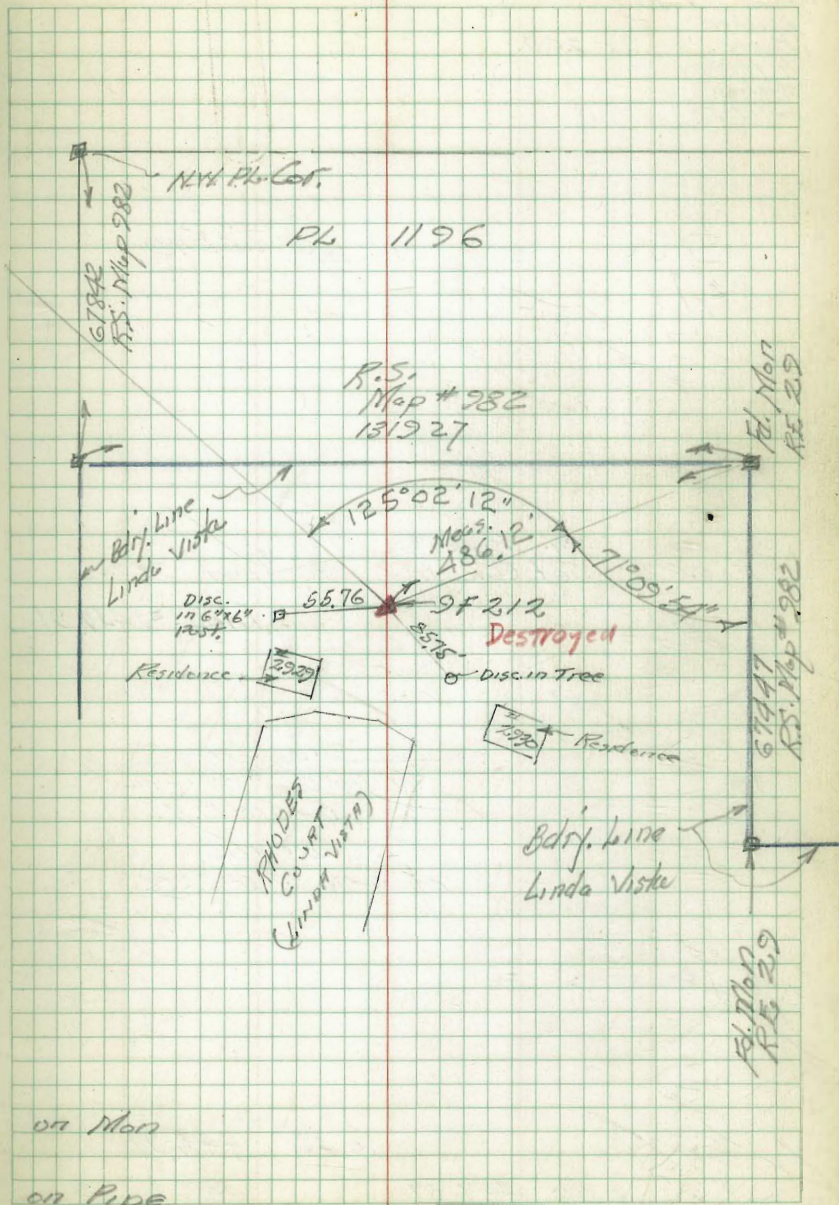 N.W. P.L. Cor.
PL 1196
678.42
R.S. Map 982
R.S.
Map # 982
1319.27
Fd. Mon
RE 29
Bdry. Line
Linda Vista
125°02'12"
Meas.
486.12'
71°09'54"
Disc.
in 6"x6"
Post.
55.76
9F 212
Destroyed
85.75'
Disc. in Tree
Residence
2929
2930
Residence
674.47
R.S. Map # 982
RHODES
COURT
(LINDA VISTA)
Bdry. Line
Linda Vista
Fd. Mon
RE 29
on Mon
on Pipe